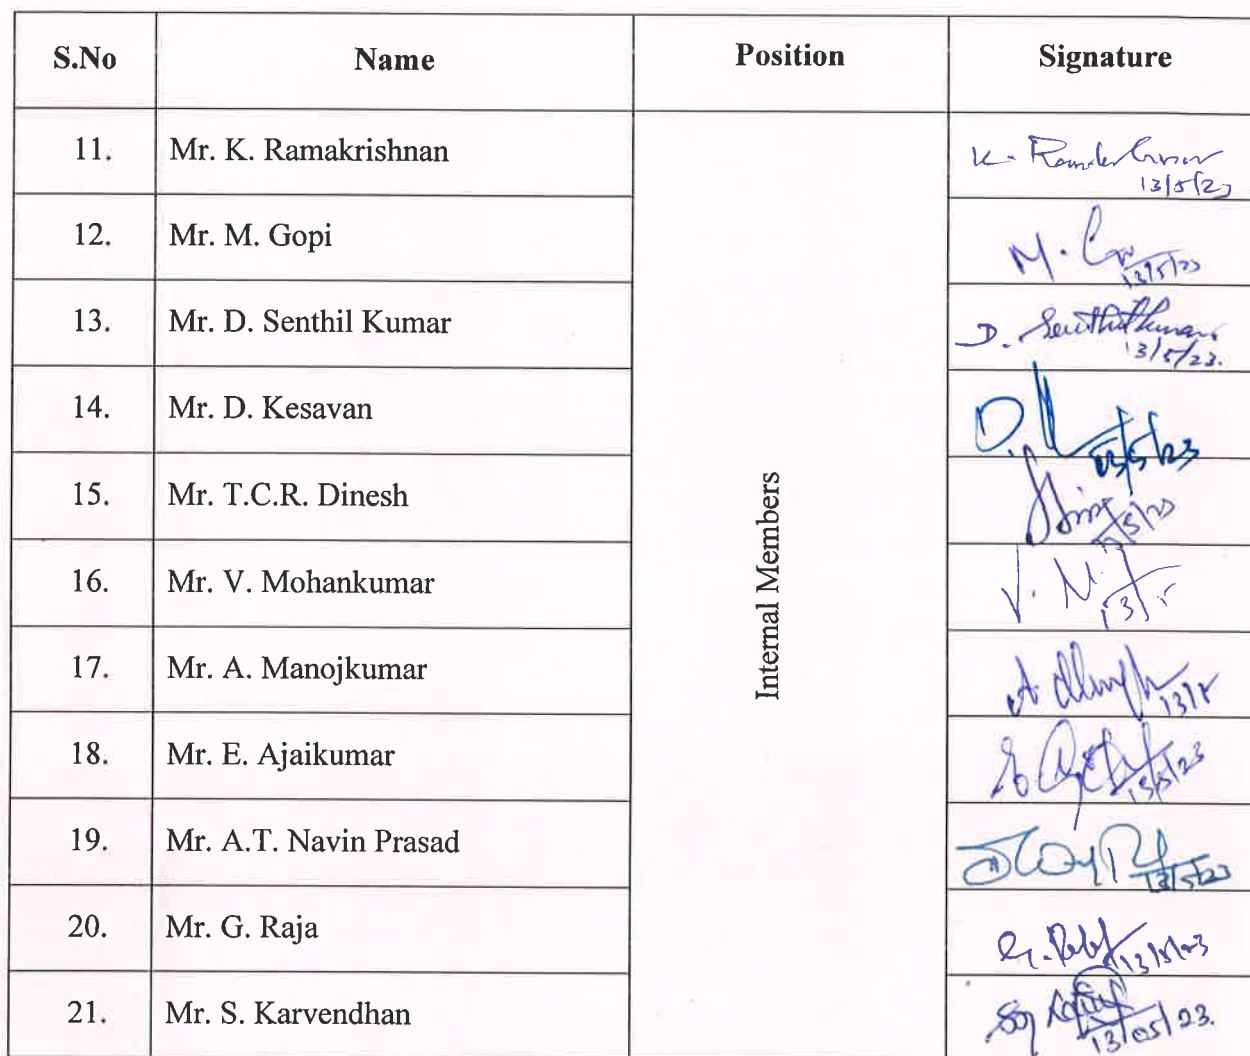 S.No Name Position Signature
11. Mr. K. Ramakrishnan K. Ramakrishnan
13/5/23
12. Mr. M. Gopi M.
13/5/23
13. Mr. D. Senthil Kumar D. Senthilkumar
13/5/23.
14. Mr. D. Kesavan D.
13/5/23
15. Mr. T.C.R. Dinesh
Internal Members
16. Mr. V. Mohankumar V. M
13/5
17. Mr. A. Manojkumar A.
13/5
18. Mr. E. Ajaikumar
13/5/23
19. Mr. A.T. Navin Prasad
13/5/23
20. Mr. G. Raja G.
13/5/23
21. Mr. S. Karvendhan
13/05/23.